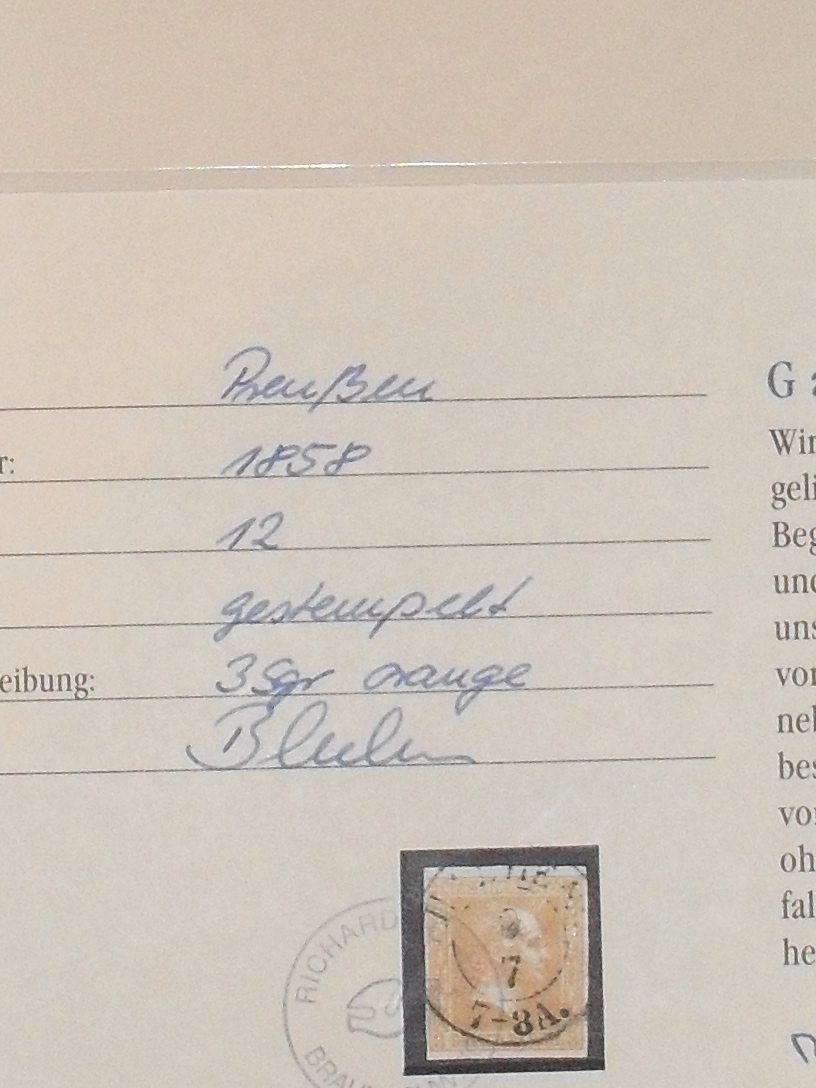 Preußen
r: 1858
12
gestempelt
eibung: 3 Sgr orange
G
Wir
geli
Beg
und
uns
von
neb
bes
vor
oh
fal
he
RICHARD
BRAU
7
7-8A.